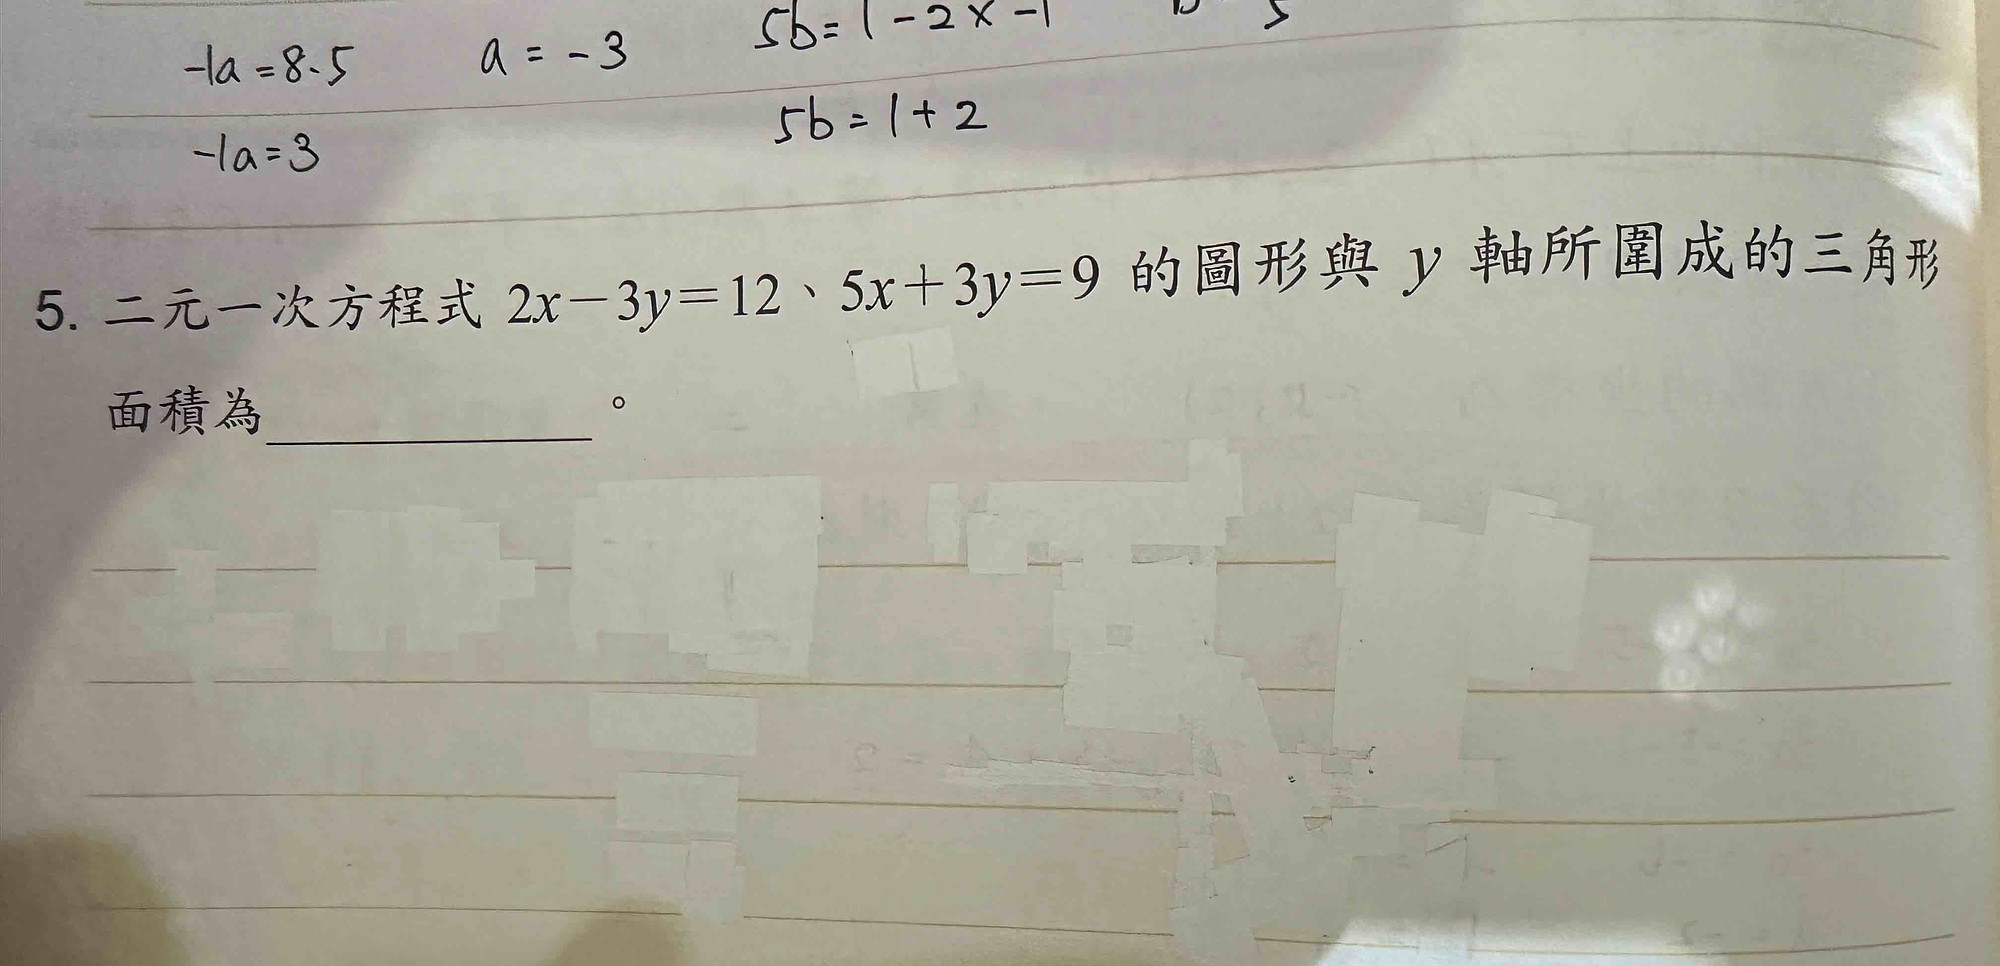 5b=1-2×-1
-1a=8-5 a=-3
5b=1+2
-1a=3
5. 二元一次方程式 2x-3y=12、5x+3y=9 的圖形與 y 軸所圍成的三角形
面積為____________。